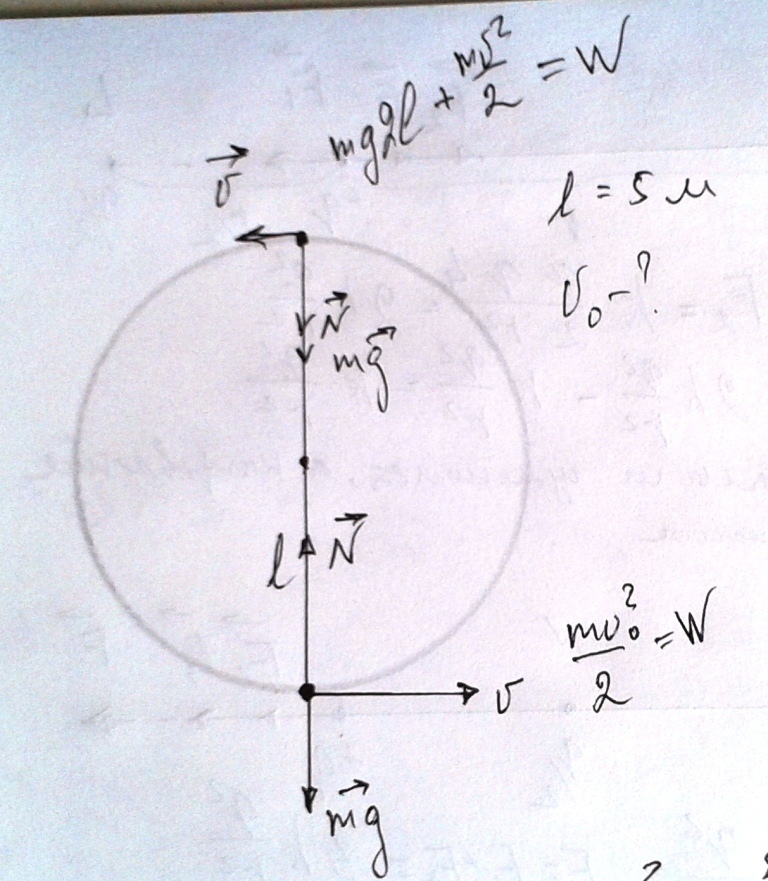 mg2l + mv²/2 = W
v⃗
l = 5 м
v₀ - ?
N⃗
mg⃗
l
N⃗
mv₀²/2 = W
v
mg⃗